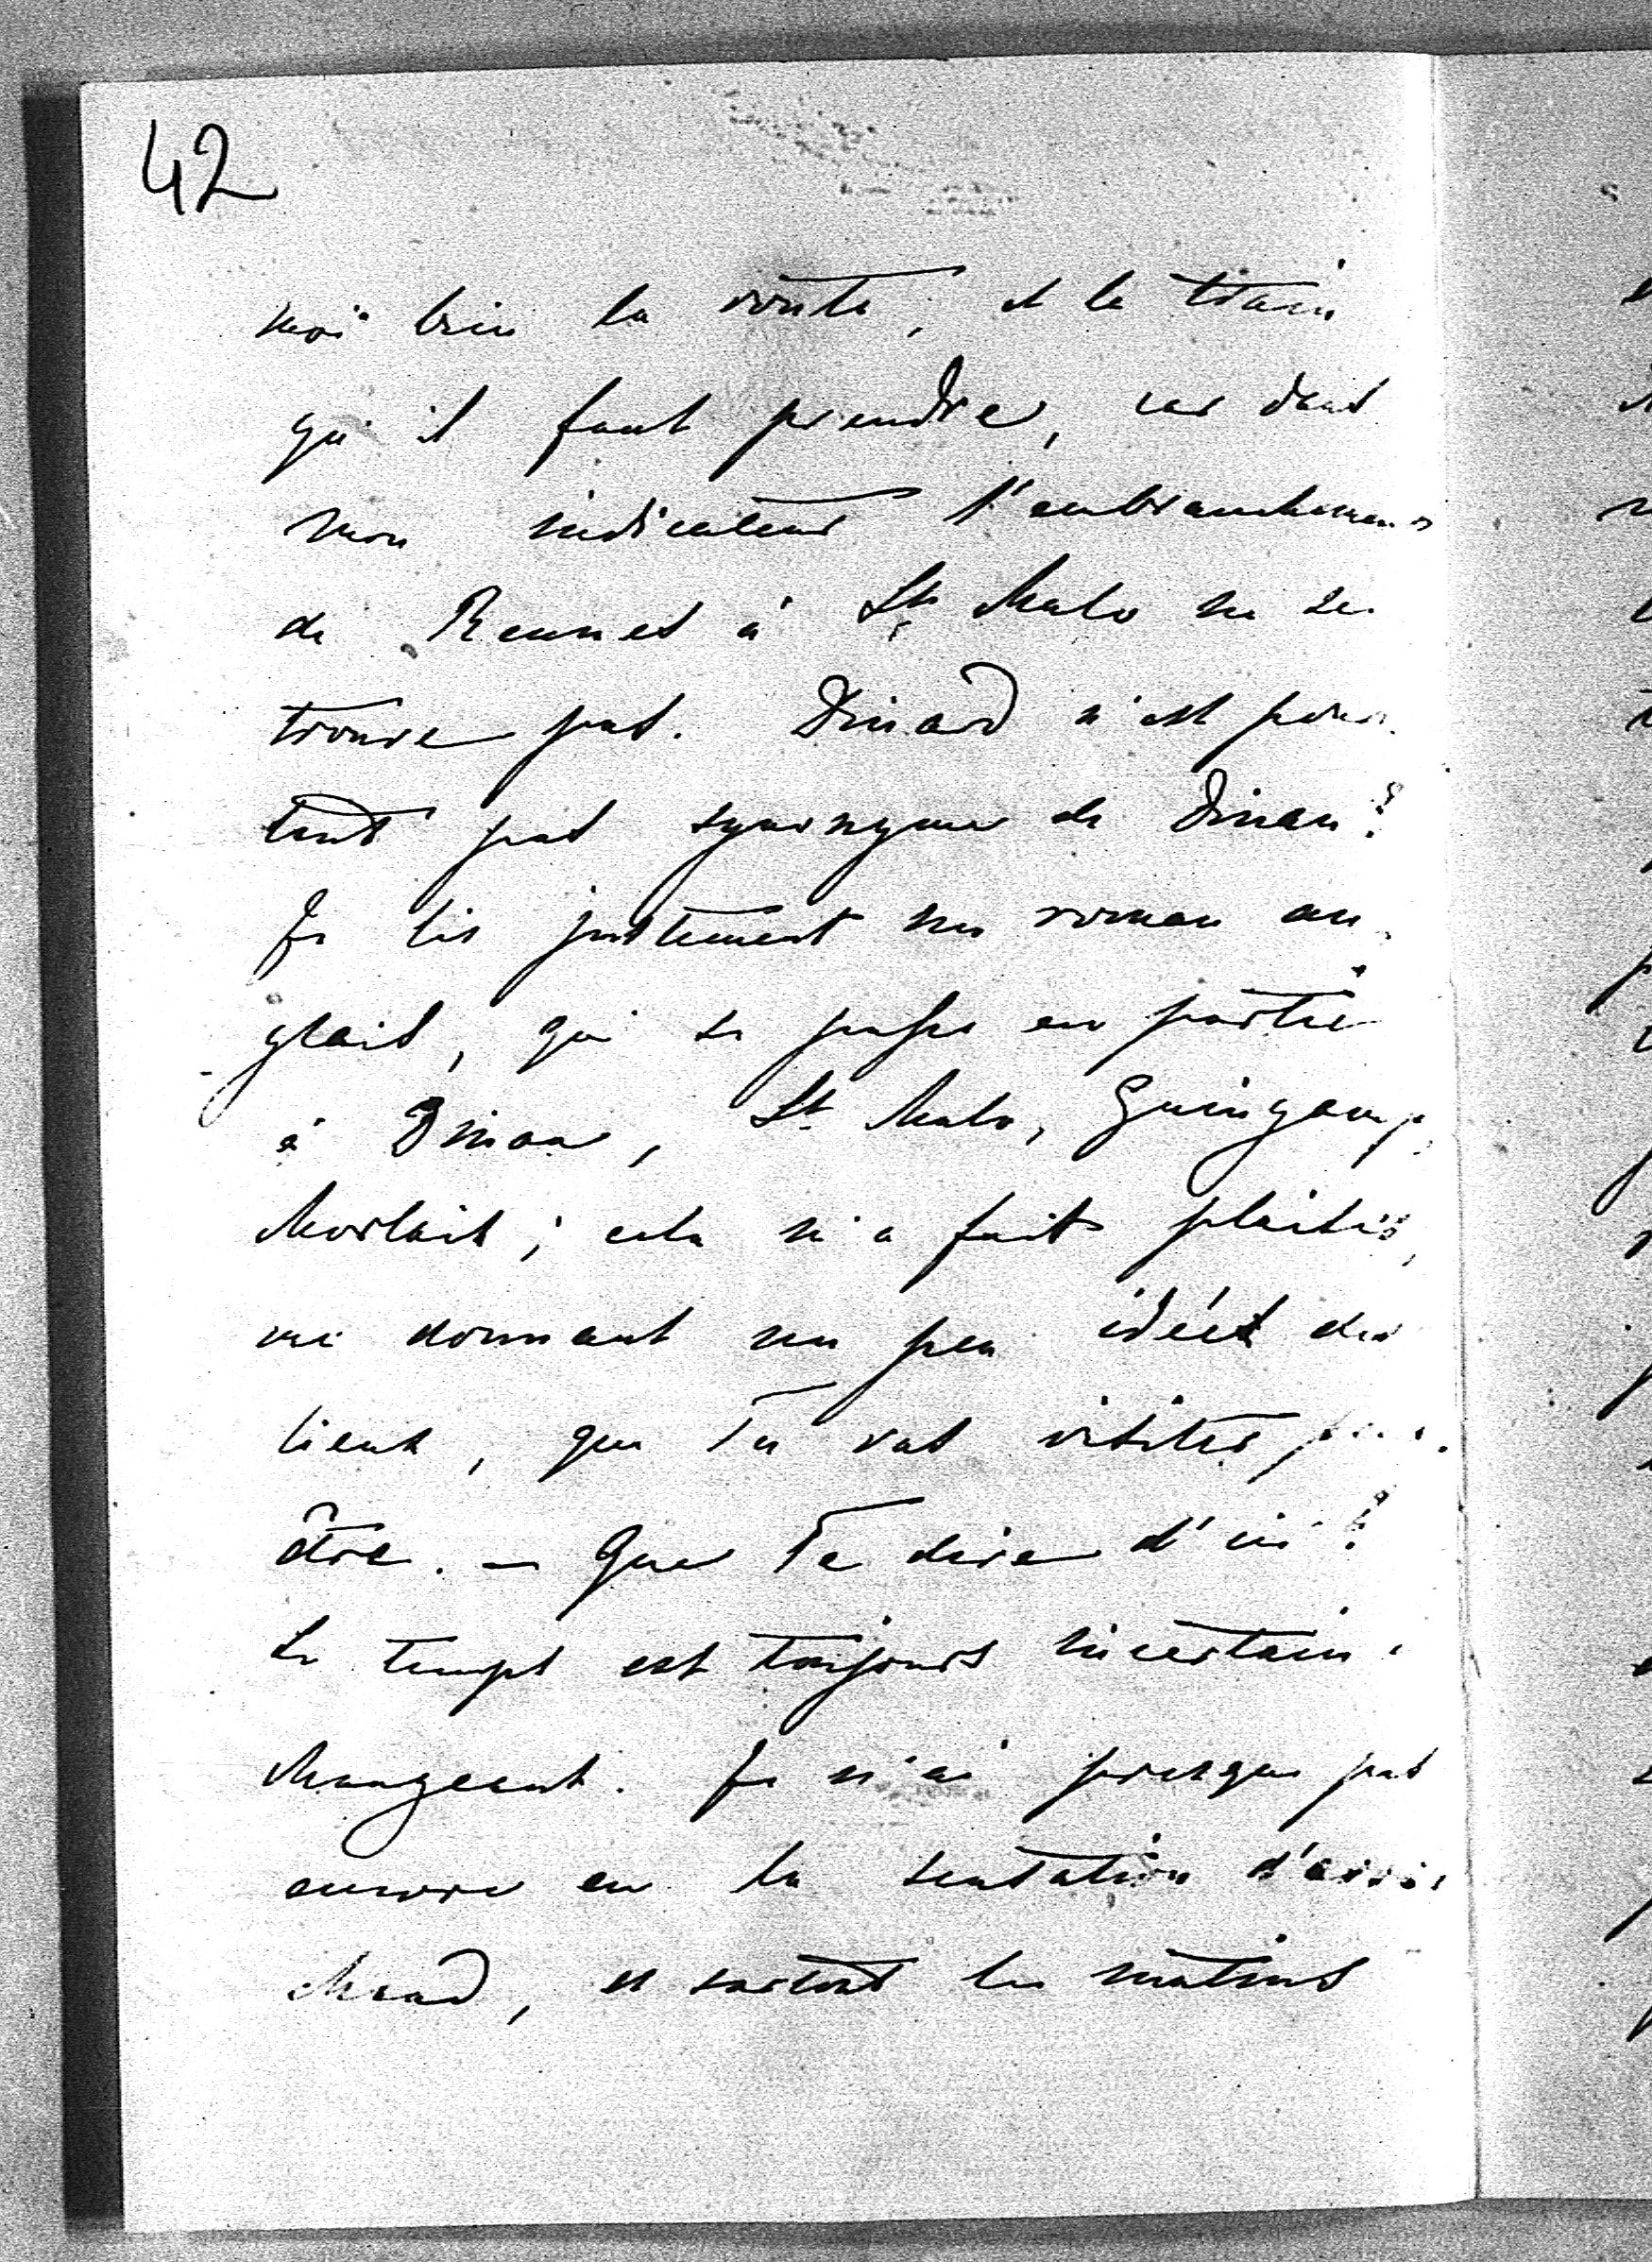 42
moi bien la route, et le train
qu'il faut prendre, car dans
mon indicateur l'embranchement
de Rennes à St Malo ne se
trouve pas. Dinard n'est pour-
tant pas synonyme de Dinan?
Je lis justement un roman an-
glais, qui se passe en partie
à Dinan, St Malo, Guingamp,
Morlaix; cela m'a fait plaisir,
me donnant un peu idées des
lieux, que Tu vas visiter
être. — Que Te dire d'ici?
Le temps est toujours incertain,
changeant. Je n'ai presque pas
encore eu la sensation d'avoir
chaud, et surtout les matins